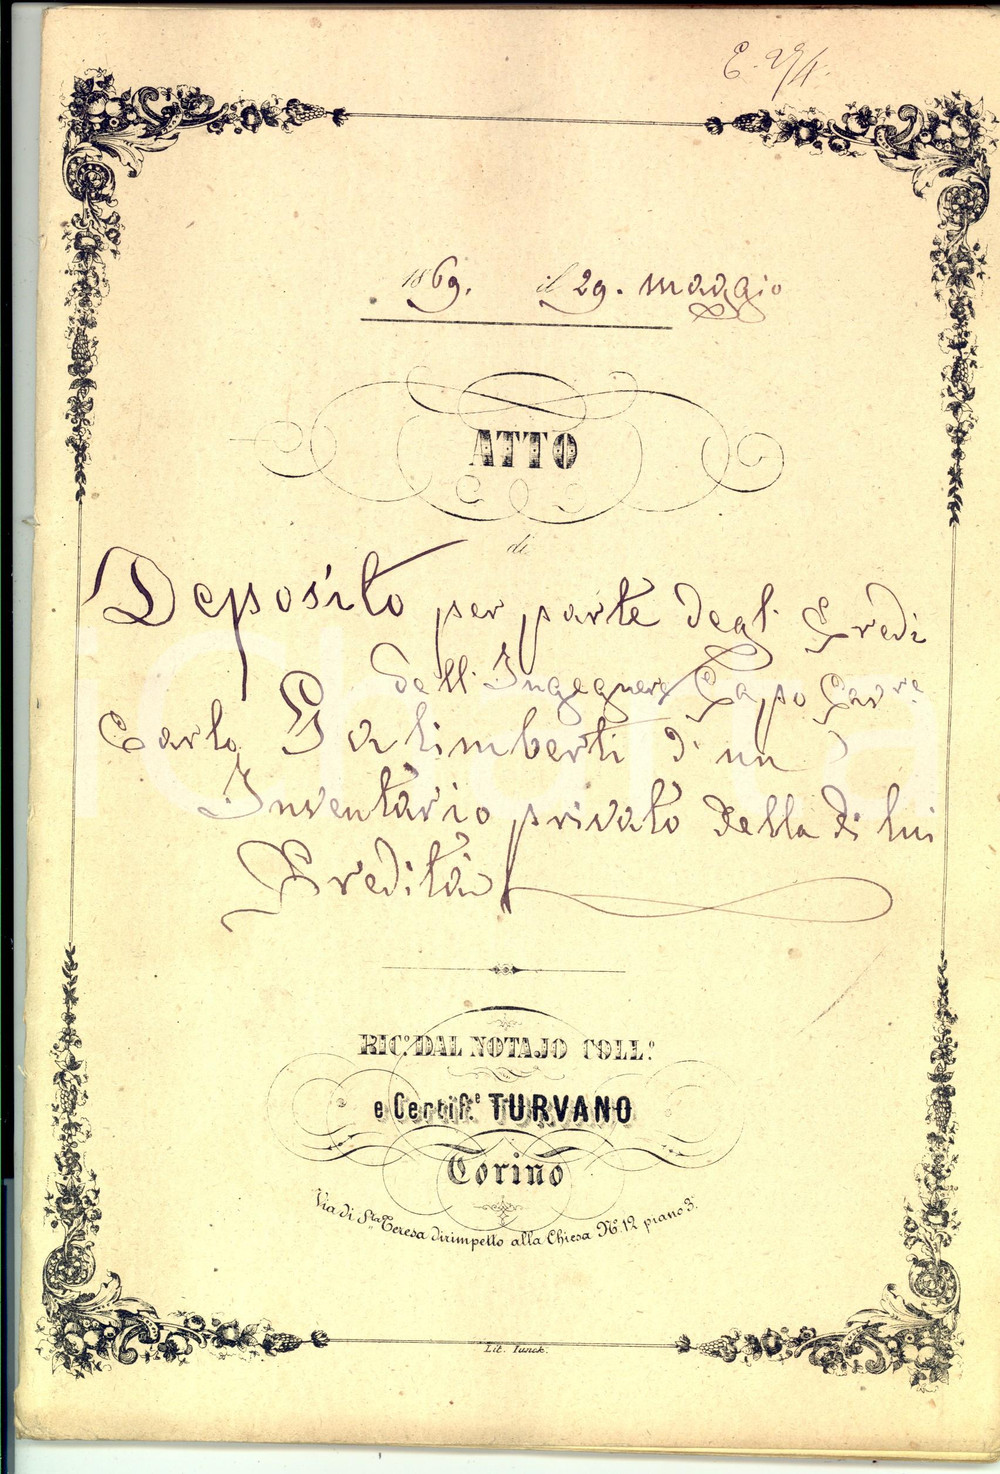 E. 29/4.
1869. il 29. Maggio
ATTO
di
Deposito per parte degl' Eredi
dell' Ingegnere Capo Cav.re
Carlo Galimberti d'un
Inventario privato della di lui
Eredità
RIC.o DAL NOTAJO COLL.o
e Certif.e TURVANO
Torino
Via di S.ta Teresa dirimpetto alla Chiesa N.o 12 piano 3.o
Lit. Junck.